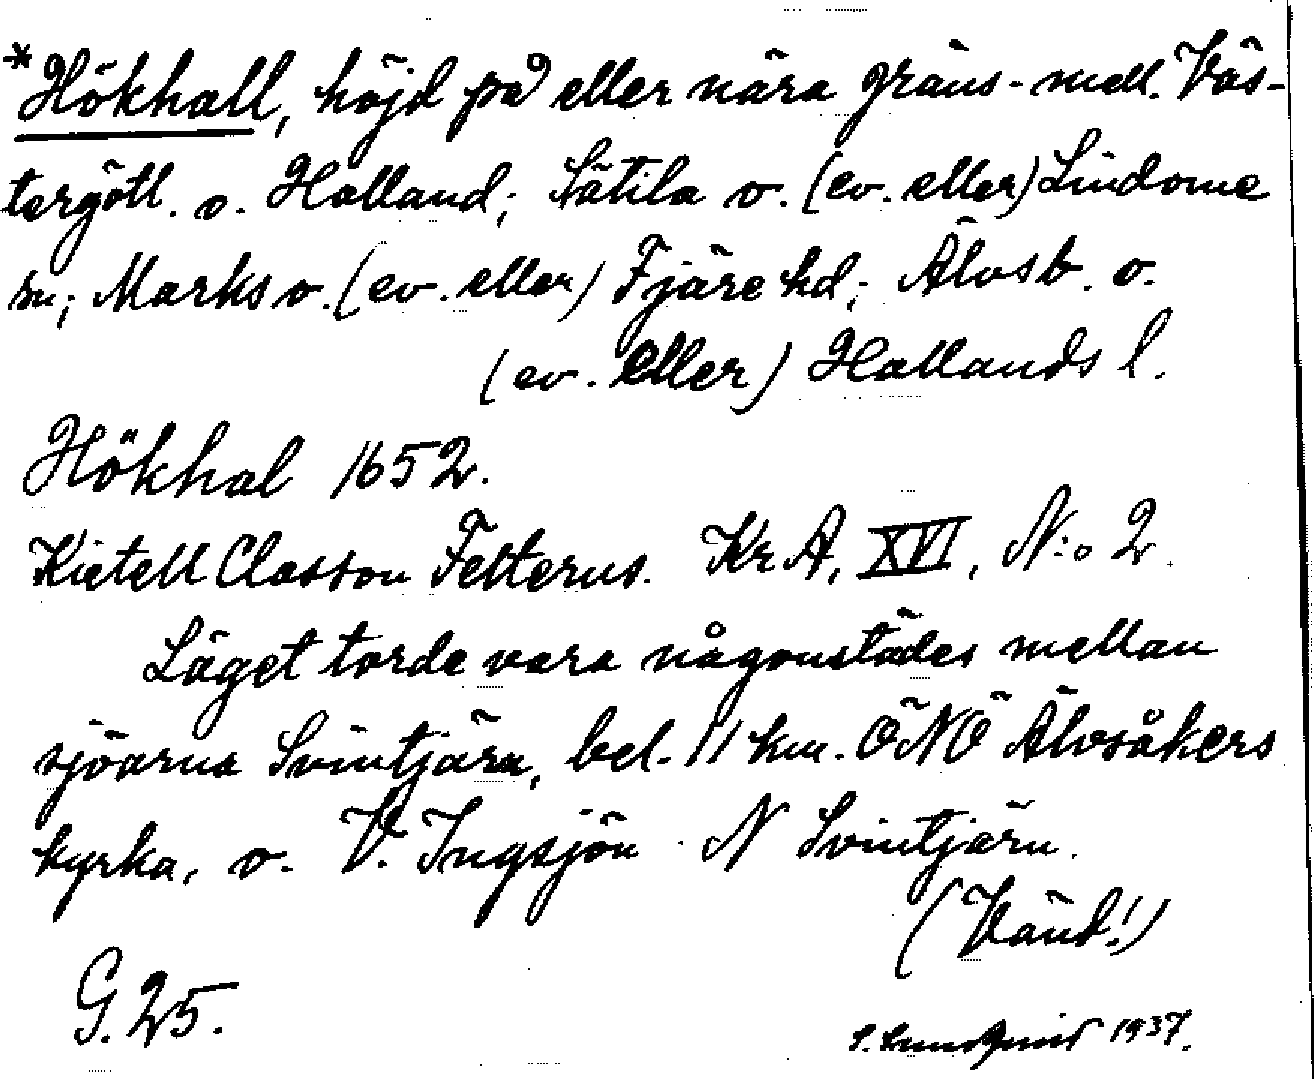 *Hökhall, höjd på eller nära gräns- mell. Väs-
tergötl. o. Halland; Sätila o. (ev. eller) Lindome
sn; Marks o. (ev. eller) Fjäre hd; Älvsb. o.
(ev. eller) Hallands l.
Hökhal 1652.
Kietell Classon Felterus. Kr A, XVI, N:o 2
Läget torde vara någonstädes mellan
sjöarna Svintjärn, bel. 11 km. ÖNÖ Älvsåkers
kyrka, o. V. Ingsjön N Svintjärn.
(Vänd!)
G. 25.
S. Lundquist 1937.